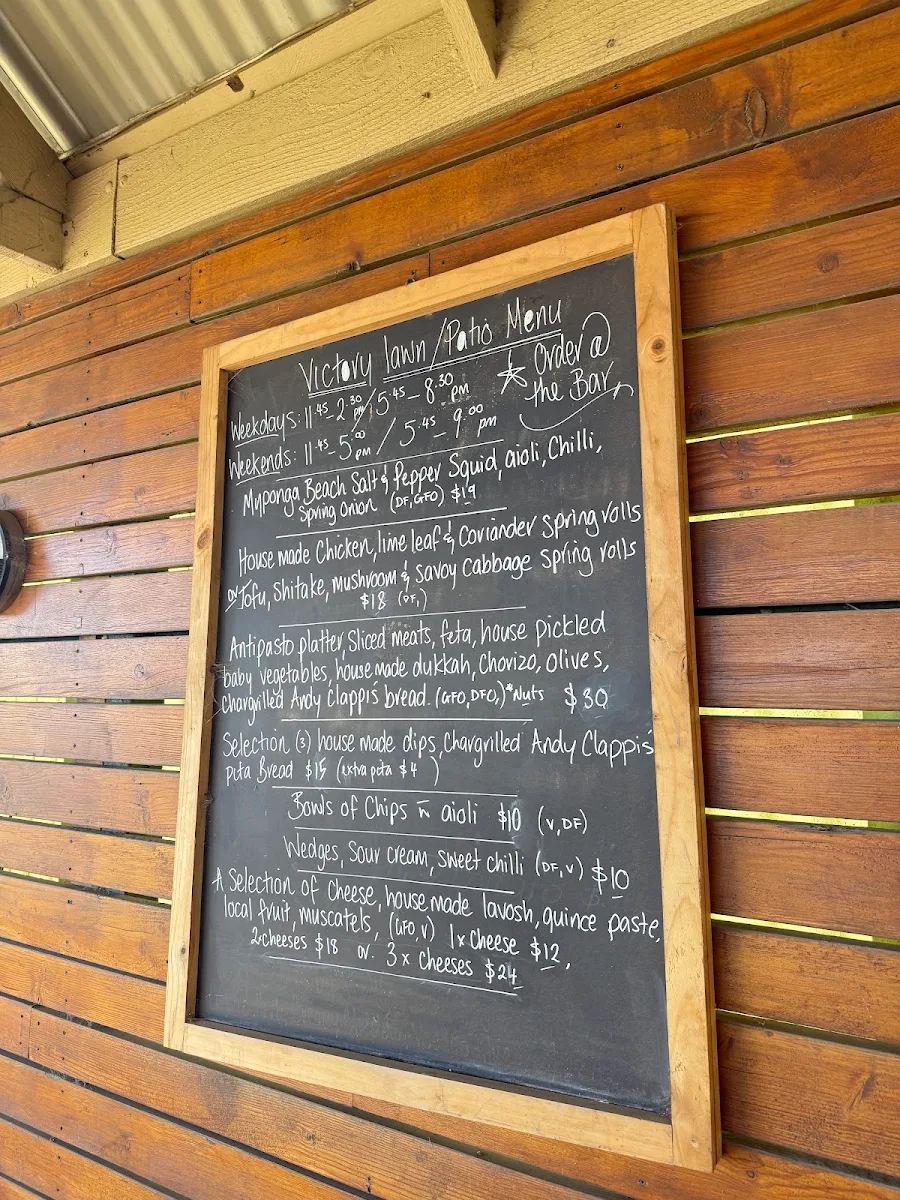 Victory lawn/Patio Menu
Weekdays: 11.45 - 2.30 pm / 5.45 - 8.30 pm
☆ Order @ the Bar
Weekends: 11.45 - 5.00 pm / 5.45 - 9.00 pm
Myponga Beach Salt & Pepper Squid, aioli, Chilli,
Spring Onion (DF, GFO) $19
House made Chicken, lime leaf & Coriander Spring rolls
or Tofu, Shitake, mushroom & savoy Cabbage Spring rolls
$18 (DF,)
Antipasto platter, Sliced meats, feta, house pickled
baby vegetables, house made dukkah, Chorizo, olives,
Chargrilled Andy Clappis bread. (GFO, DFO,) *Nuts $30
Selection (3) house made dips, Chargrilled Andy Clappis
pita Bread $15 (extra pita $4 )
Bowls of Chips n aioli $10 (V, DF)
Wedges, Sour cream, sweet chilli (DF, V) $10
A Selection of Cheese, house made lavosh, quince paste,
local fruit, muscatels, (GFO, V) 1x Cheese $12,
2 cheeses $18 or 3 x Cheeses $24